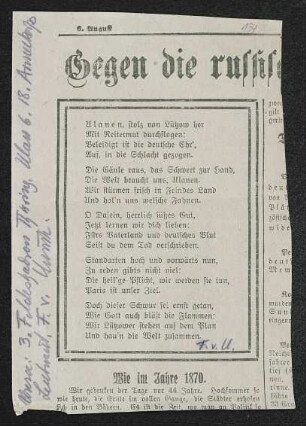 6. August
134
Gegen die russisch
Ulanen, stolz von Lützow her
Mit Reitermut durchflogen:
Beleidigt ist die deutsche Ehr',
Auf, in die Schlacht gezogen.
Die Gäule raus, das Schwert zur Hand,
Die Welt braucht uns, Ulanen.
Wir stürmen frisch in Feindes Land
Und hol'n uns welsche Fahnen.
O Dasein, herrlich süßes Gut,
Jetzt lernen wir dich lieben:
Fürs Vaterland und deutsches Blut
Seist du dem Tod verschrieben.
Standarten hoch und vorwärts nun,
Zu reden gibts nicht viel:
Die heil'ge Pflicht, wir werden sie tun,
Paris ist unser Ziel.
Doch dieser Schwur sei ernst getan,
Wie Gott auch bläst die Flammen:
Wir Lützower stehen auf dem Plan
Und hau'n die Welt zusammen.
F. v. U.
Wie im Jahre 1870.
Wir gedenken der Tage vor 44 Jahren. Hochsommer so
wie heute, die Ernte in vollen Gange, die Städter erholten
sich in den Bädern. Es ist die Zeit, wo man zu
Leutnant, F. v. Unruh